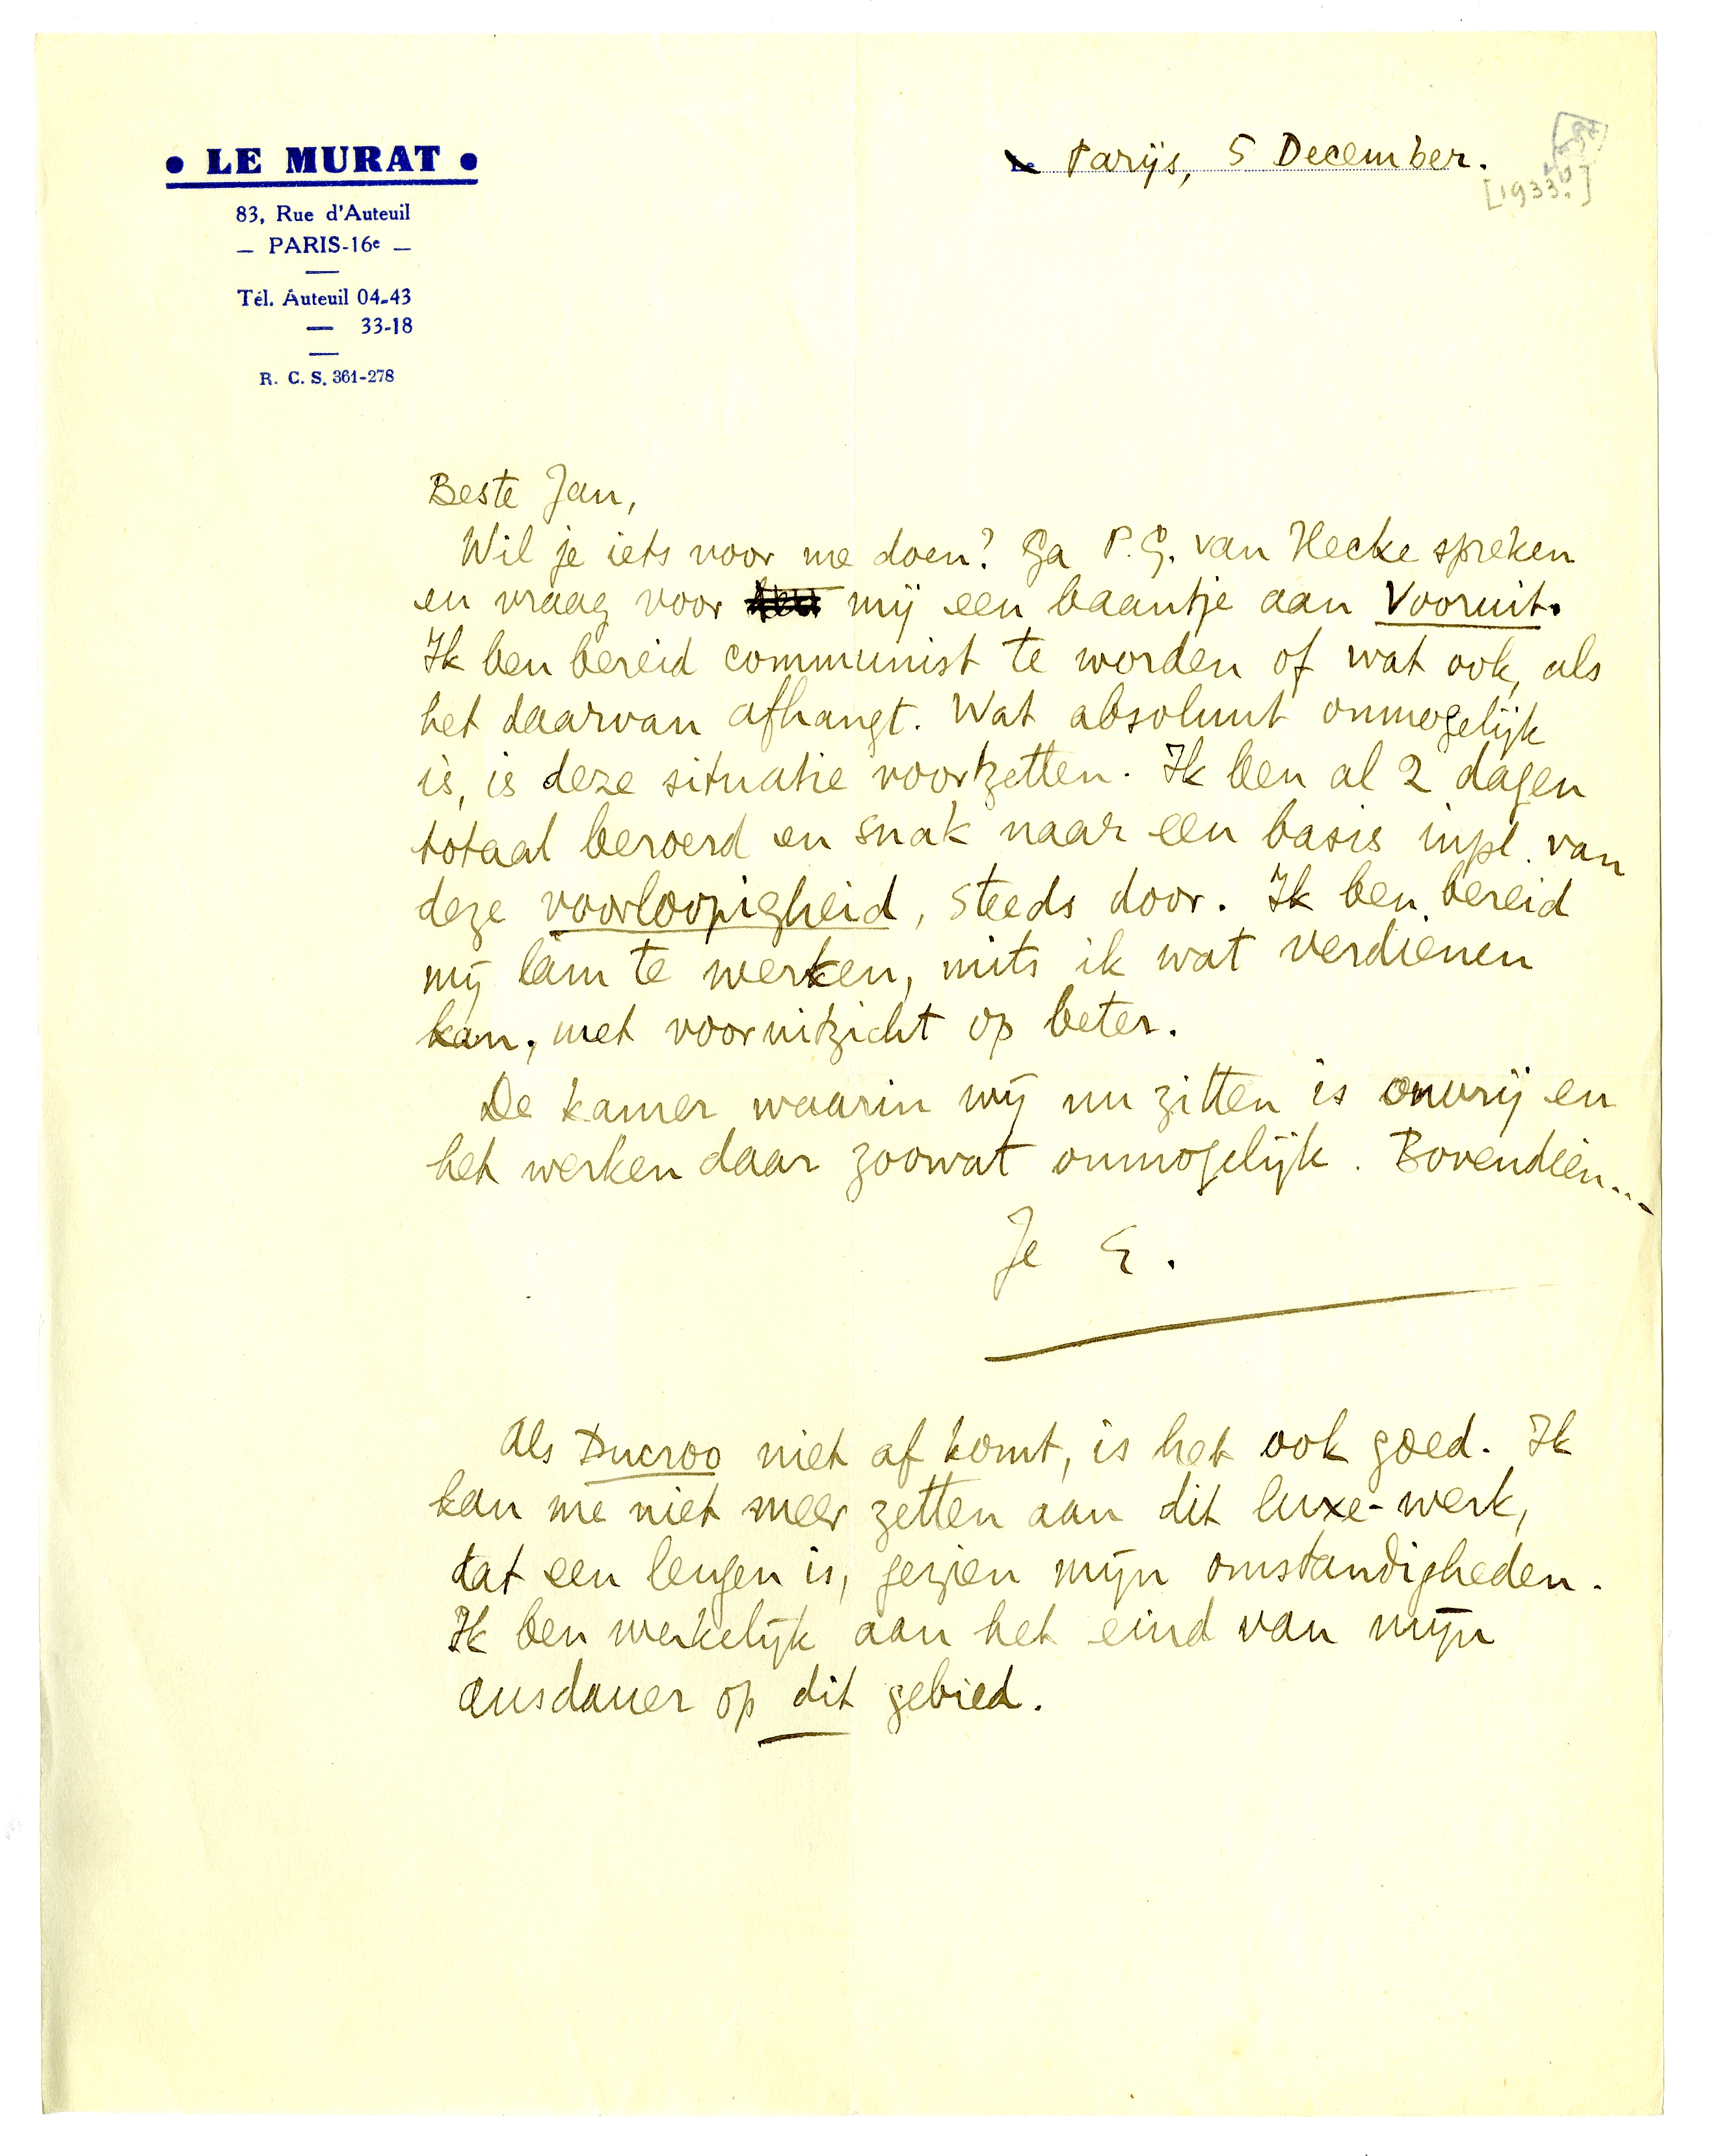 • LE MURAT •
83, Rue d'Auteuil
— PARIS-16e —
Tél. Auteuil 04-43
— 33-18
R. C. S. 361-278
Parijs, 5 December.
[1933?]
Beste Jan,
Wil je iets voor me doen? Ga P.G. van Hecke spreken
en vraag voor mij een baantje aan Vooruit.
Ik ben bereid communist te worden of wat ook, als
het daarvan afhangt. Wat absoluut onmogelijk
is, is deze situatie voortzetten. Ik ben al 2 dagen
totaal beroerd en snak naar een basis inpl. van
deze voorloopigheid, steeds door. Ik ben bereid
mij lam te werken, mits ik wat verdienen
kan, met vooruitzicht op beter.
De kamer waarin wij nu zitten is onvrij en
het werken daar zoowat onmogelijk. Bovendien...
Je E.
Als Ducroo niet af komt, is het ook goed. Ik
kan me niet meer zetten aan dit luxe-werk,
dat een leugen is, gezien mijn omstandigheden.
Ik ben werkelijk aan het eind van mijn
ausdauer op dit gebied.